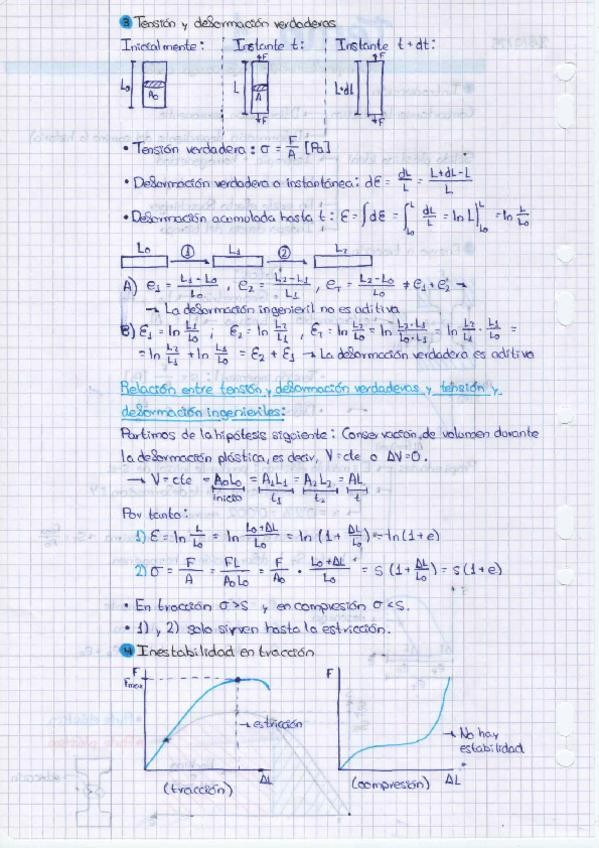 3 Tensión y deformación verdaderas
Inicialmente: Instante t: Instante t + dt:
L₀ A₀ L A F F L+dL F F
• Tensión verdadera: σ = F/A [Pa]
• Deformación verdadera o instantánea: dε = dL/L = (L+dL-L)/L
• Deformación acumulada hasta t: ε = ∫dε = ∫_{L₀}^{L} dL/L = ln L]_{L₀}^{L} = ln L/L₀
L₀ ① L₁ ② L₂
A) e₁ = (L₁-L₀)/L₀ , e₂ = (L₂-L₁)/L₁ , e_T = (L₂-L₀)/L₀ ≠ e₁+e₂ →
→ La deformación ingenieril no es aditiva
B) ε₁ = ln L₁/L₀ ; ε₂ = ln L₂/L₁ , ε_T = ln L₂/L₀ = ln (L₂·L₁)/(L₀·L₁) = ln L₂/L₁ · L₁/L₀ =
= ln L₂/L₁ + ln L₁/L₀ = ε₂ + ε₁ → La deformación verdadera es aditiva
Relación entre tensión y deformación verdaderas y tensión y
deformación ingenieriles:
Partimos de la hipótesis siguiente: Conservación de volumen durante
la deformación plástica, es decir, V = cte o ΔV = 0.
→ V = cte = A₀L₀ = A₁L₁ = A₂L₂ = AL
inicio t₁ t₂ t
Por tanto:
1) ε = ln L/L₀ = ln (L₀+ΔL)/L₀ = ln (1 + ΔL/L₀) = ln(1+e)
2) σ = F/A = FL/A₀L₀ = F/A₀ · (L₀+ΔL)/L₀ = s(1 + ΔL/L₀) = s(1+e)
• En tracción σ>s y en compresión σ<s.
• 1) y 2) solo sirven hasta la estricción.
4 Inestabilidad en tracción
F Fmax → estricción ΔL (tracción)
F → No hay estabilidad ΔL (compresión)